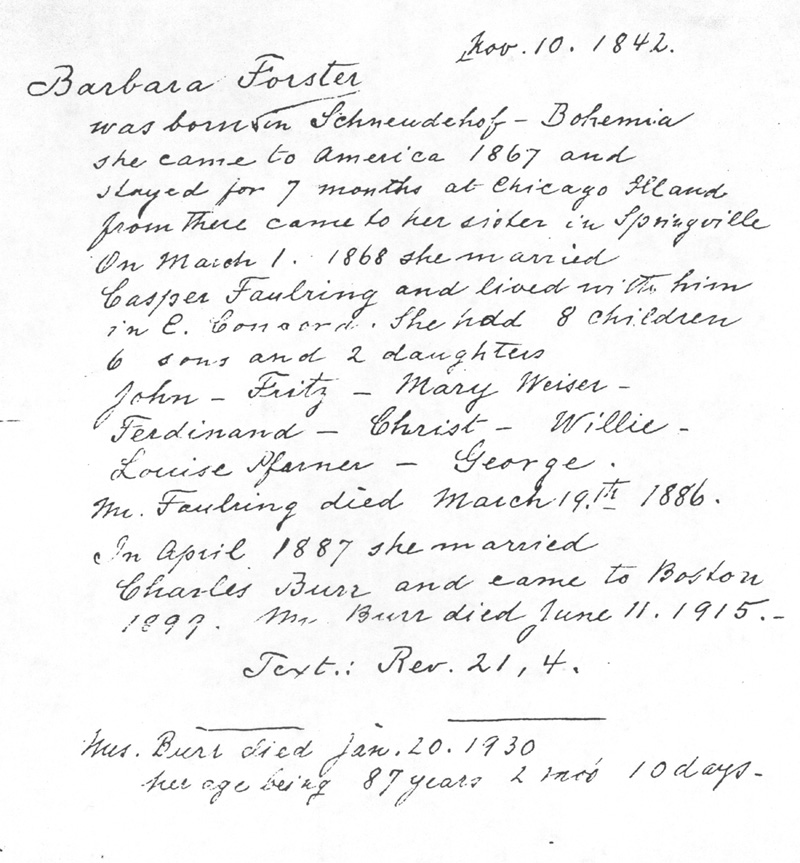 Nov. 10. 1842.
Barbara Forster
was born in Schneudehof - Bohemia
she came to America 1867 and
stayed for 7 months at Chicago Ill and
from there came to her sister in Springville
On March 1. 1868 she married
Casper Faulring and lived with him
in E. Concord. She had 8 children
6 sons and 2 daughters
John - Fritz - Mary Weiser -
Ferdinand - Christ - Willie -
Louise Pfarner - George.
Mr. Faulring died March 19.th 1886.
In April 1887 she married
Charles Burr and came to Boston
Mr Burr died June 11. 1915.-
Text.: Rev. 21, 4.
Mrs. Burr died Jan. 20. 1930
her age being 87 years 2 mos 10 days-